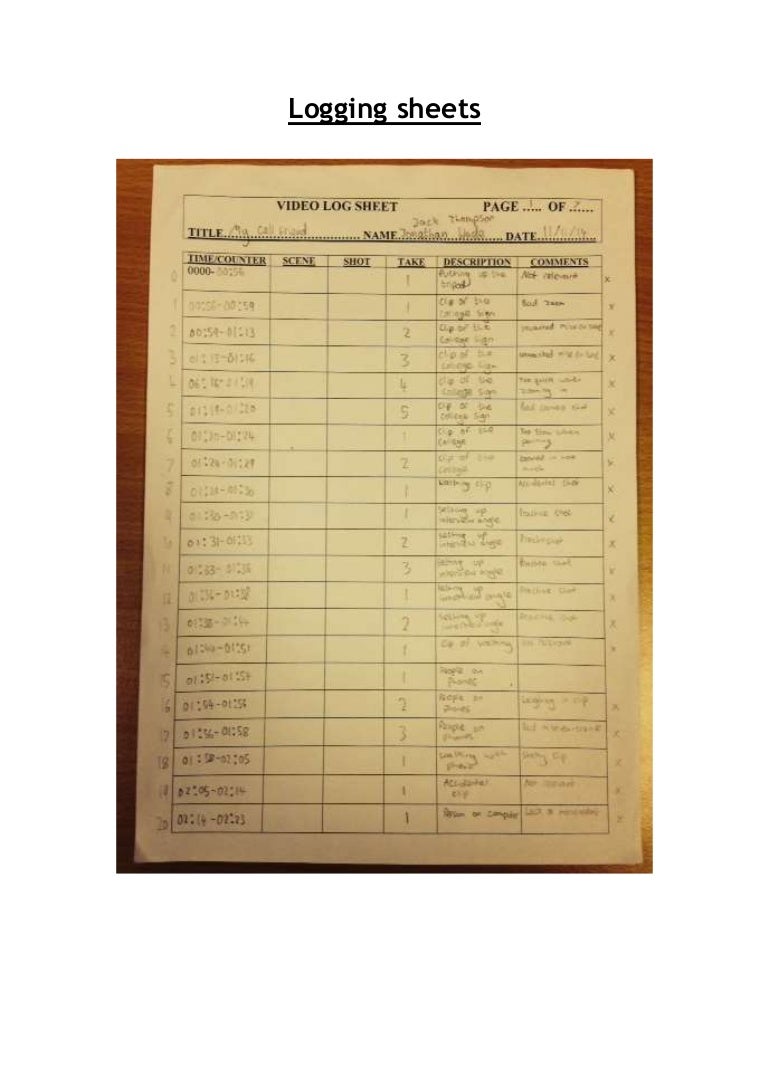 Logging sheets
VIDEO LOG SHEET PAGE ..1.. OF .2.....
Jack Thompson
TITLE My Cell Friend NAME Jonathan Wade DATE 11/11/14
TIME/COUNTER SCENE SHOT TAKE DESCRIPTION COMMENTS
0 0000-00:56 1 Putting up the tripod Not relevant x
1 00:56-00:59 1 Clip of the college sign Bad zoom x
2 00:59-01:13 2 Clip of the college sign x
3 01:13-01:16 3 clip of the college sign x
4 1:19 4 clip of the college sign Too quick when zooming in x
5 01:19-01:20 5 Clip of the college sign Bad camera shot x
6 01:20-01:24 1 Clip of the college Too slow when panning x
7 01:24-01:29 2 Clip of the college x
8 01:30 1 Walking clip Accidental shot x
9 01:30-01:31 1 Setting up interview angle Practice shot x
10 01:31-01:33 2 setting up interview angle Practice shot x
11 01:33-01:36 3 Setting up interview angle Practice shot x
12 01:36-01:38 1 Setting up interview angle Practice shot x
13 01:38-01:44 2 Setting up interview angle Practice shot x
14 01:44-01:51 1 Clip of walking x
15 01:51-01:54 1 People on Phones
16 01:54-01:56 2 People on Phones Laughing in clip x
17 01:56-01:58 3 People on phones Bad mise-en-scene x
18 01:58-02:05 1 walking with phone Shaky clip x
19 02:05-02:14 1 Accidental clip Not relevant x
20 02:14-02:23 1 Person on computer x